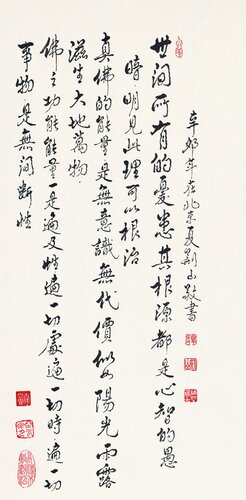 世间所有的憂患其根源都是心智的愚
暗明見此理可以根治
真佛的能量是無意識無代價似如陽光雨露
滋生大地萬物
佛之功能能量一是遍及性遍一切處遍一切時遍一切
事物是無间斷性
辛卯年在北京夏荆山敬書